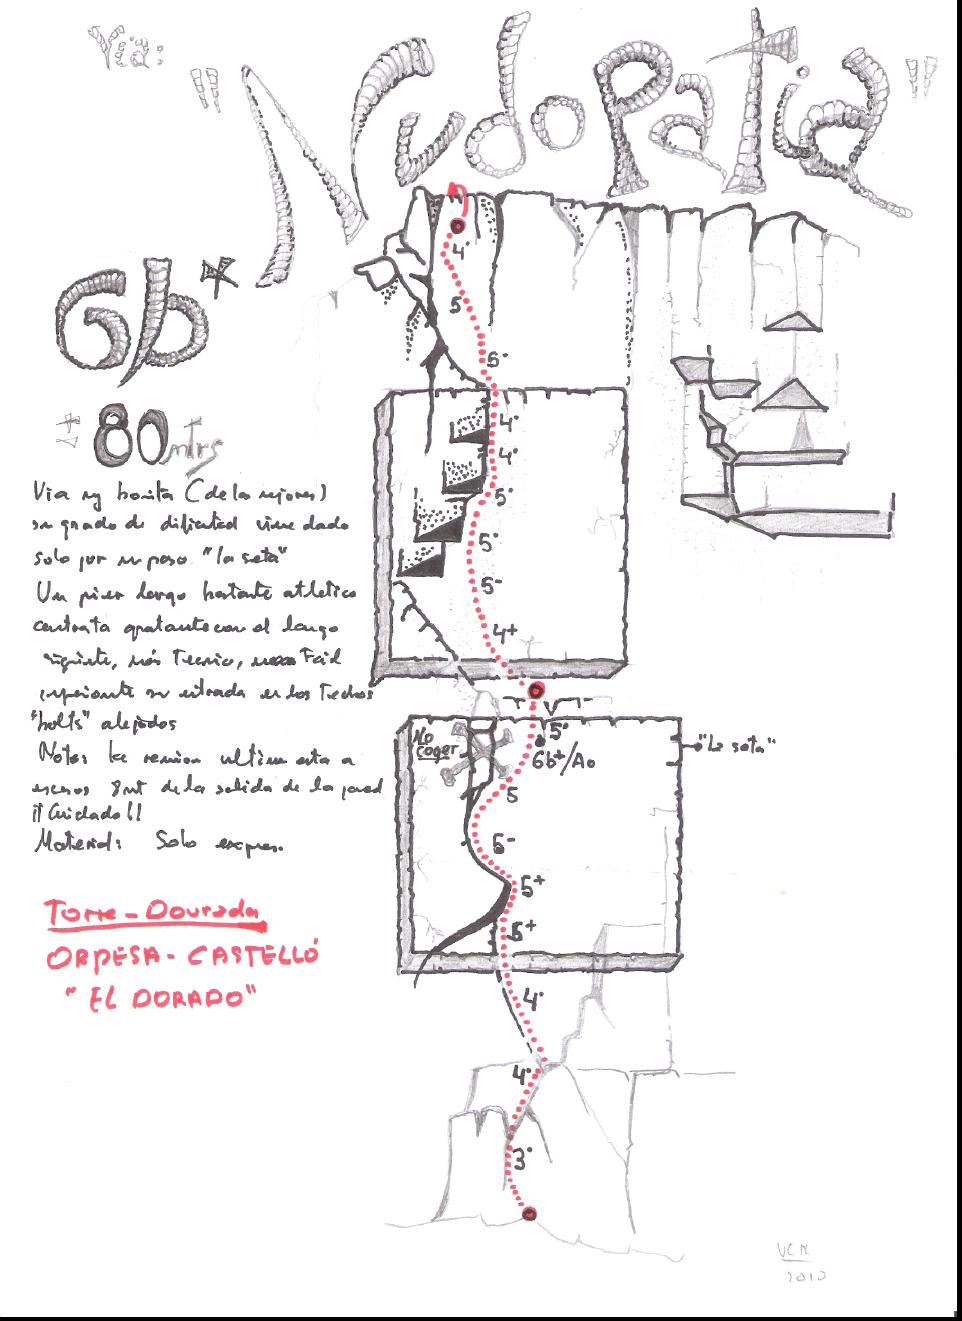 Via:
"Nudopatia"
6b+
± 80 mtrs
Via my bonita (de las mejores)
su grado de dificultad viene dado
solo por un paso "la seta"
Un primer largo bastante atletico
contrasta gratamente con el largo
siguiente, más Tecnico, mas Facil
impresionante su entrada en los Techos
"bolts" alejados
Nota: la reunion ultima esta a
menos 8mt de la salida de la pared
¡¡Cuidado!!
Material: Solo expres.
Torre-Dourada
ORPESA - CASTELLÓ
"EL DORADO"
4°
5
5°
4°
4°
5°
5°
5-
4+
No
coger
5°
6b+/Ao
"La seta"
5
5-
5+
5+
4°
4°
3°
VCM
2010